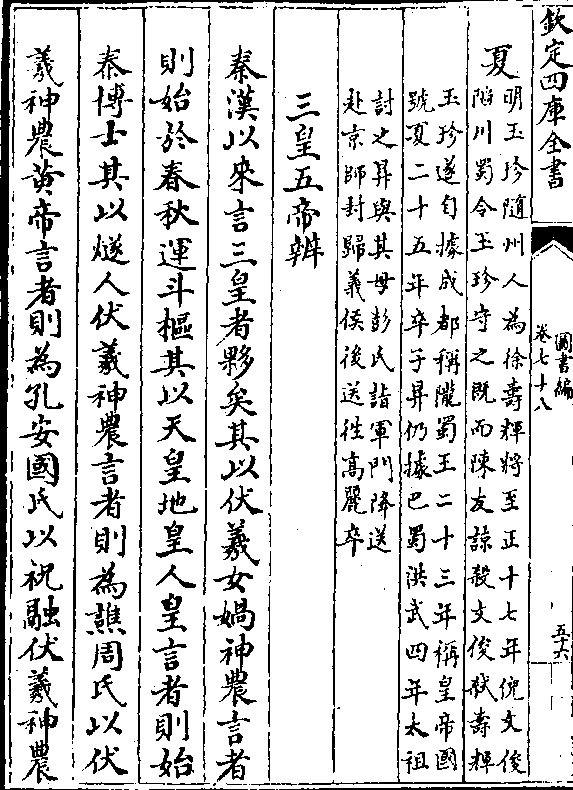 欽定四庫全書
圖書編
卷七十八
五十六
夏
明玉珍隨州人為徐壽輝將至正十七年倪文俊
陷川蜀令玉珍守之既而陳友諒殺文俊弑壽輝
玉珍遂自據成都稱隴蜀王二十三年稱皇帝國
號夏二十五年卒子昇仍據巴蜀洪武四年太祖
討之昇與其母彭氏詣軍門降送
赴京師封歸義侯後送往高麗卒
三皇五帝辨
秦漢以來言三皇者夥矣其以伏羲女媧神農言者
則始於春秋運斗樞其以天皇地皇人皇言者則始
秦博士其以燧人伏羲神農言者則為譙周氏以伏
羲神農黃帝言者則為孔安國氏以祝融伏羲神農